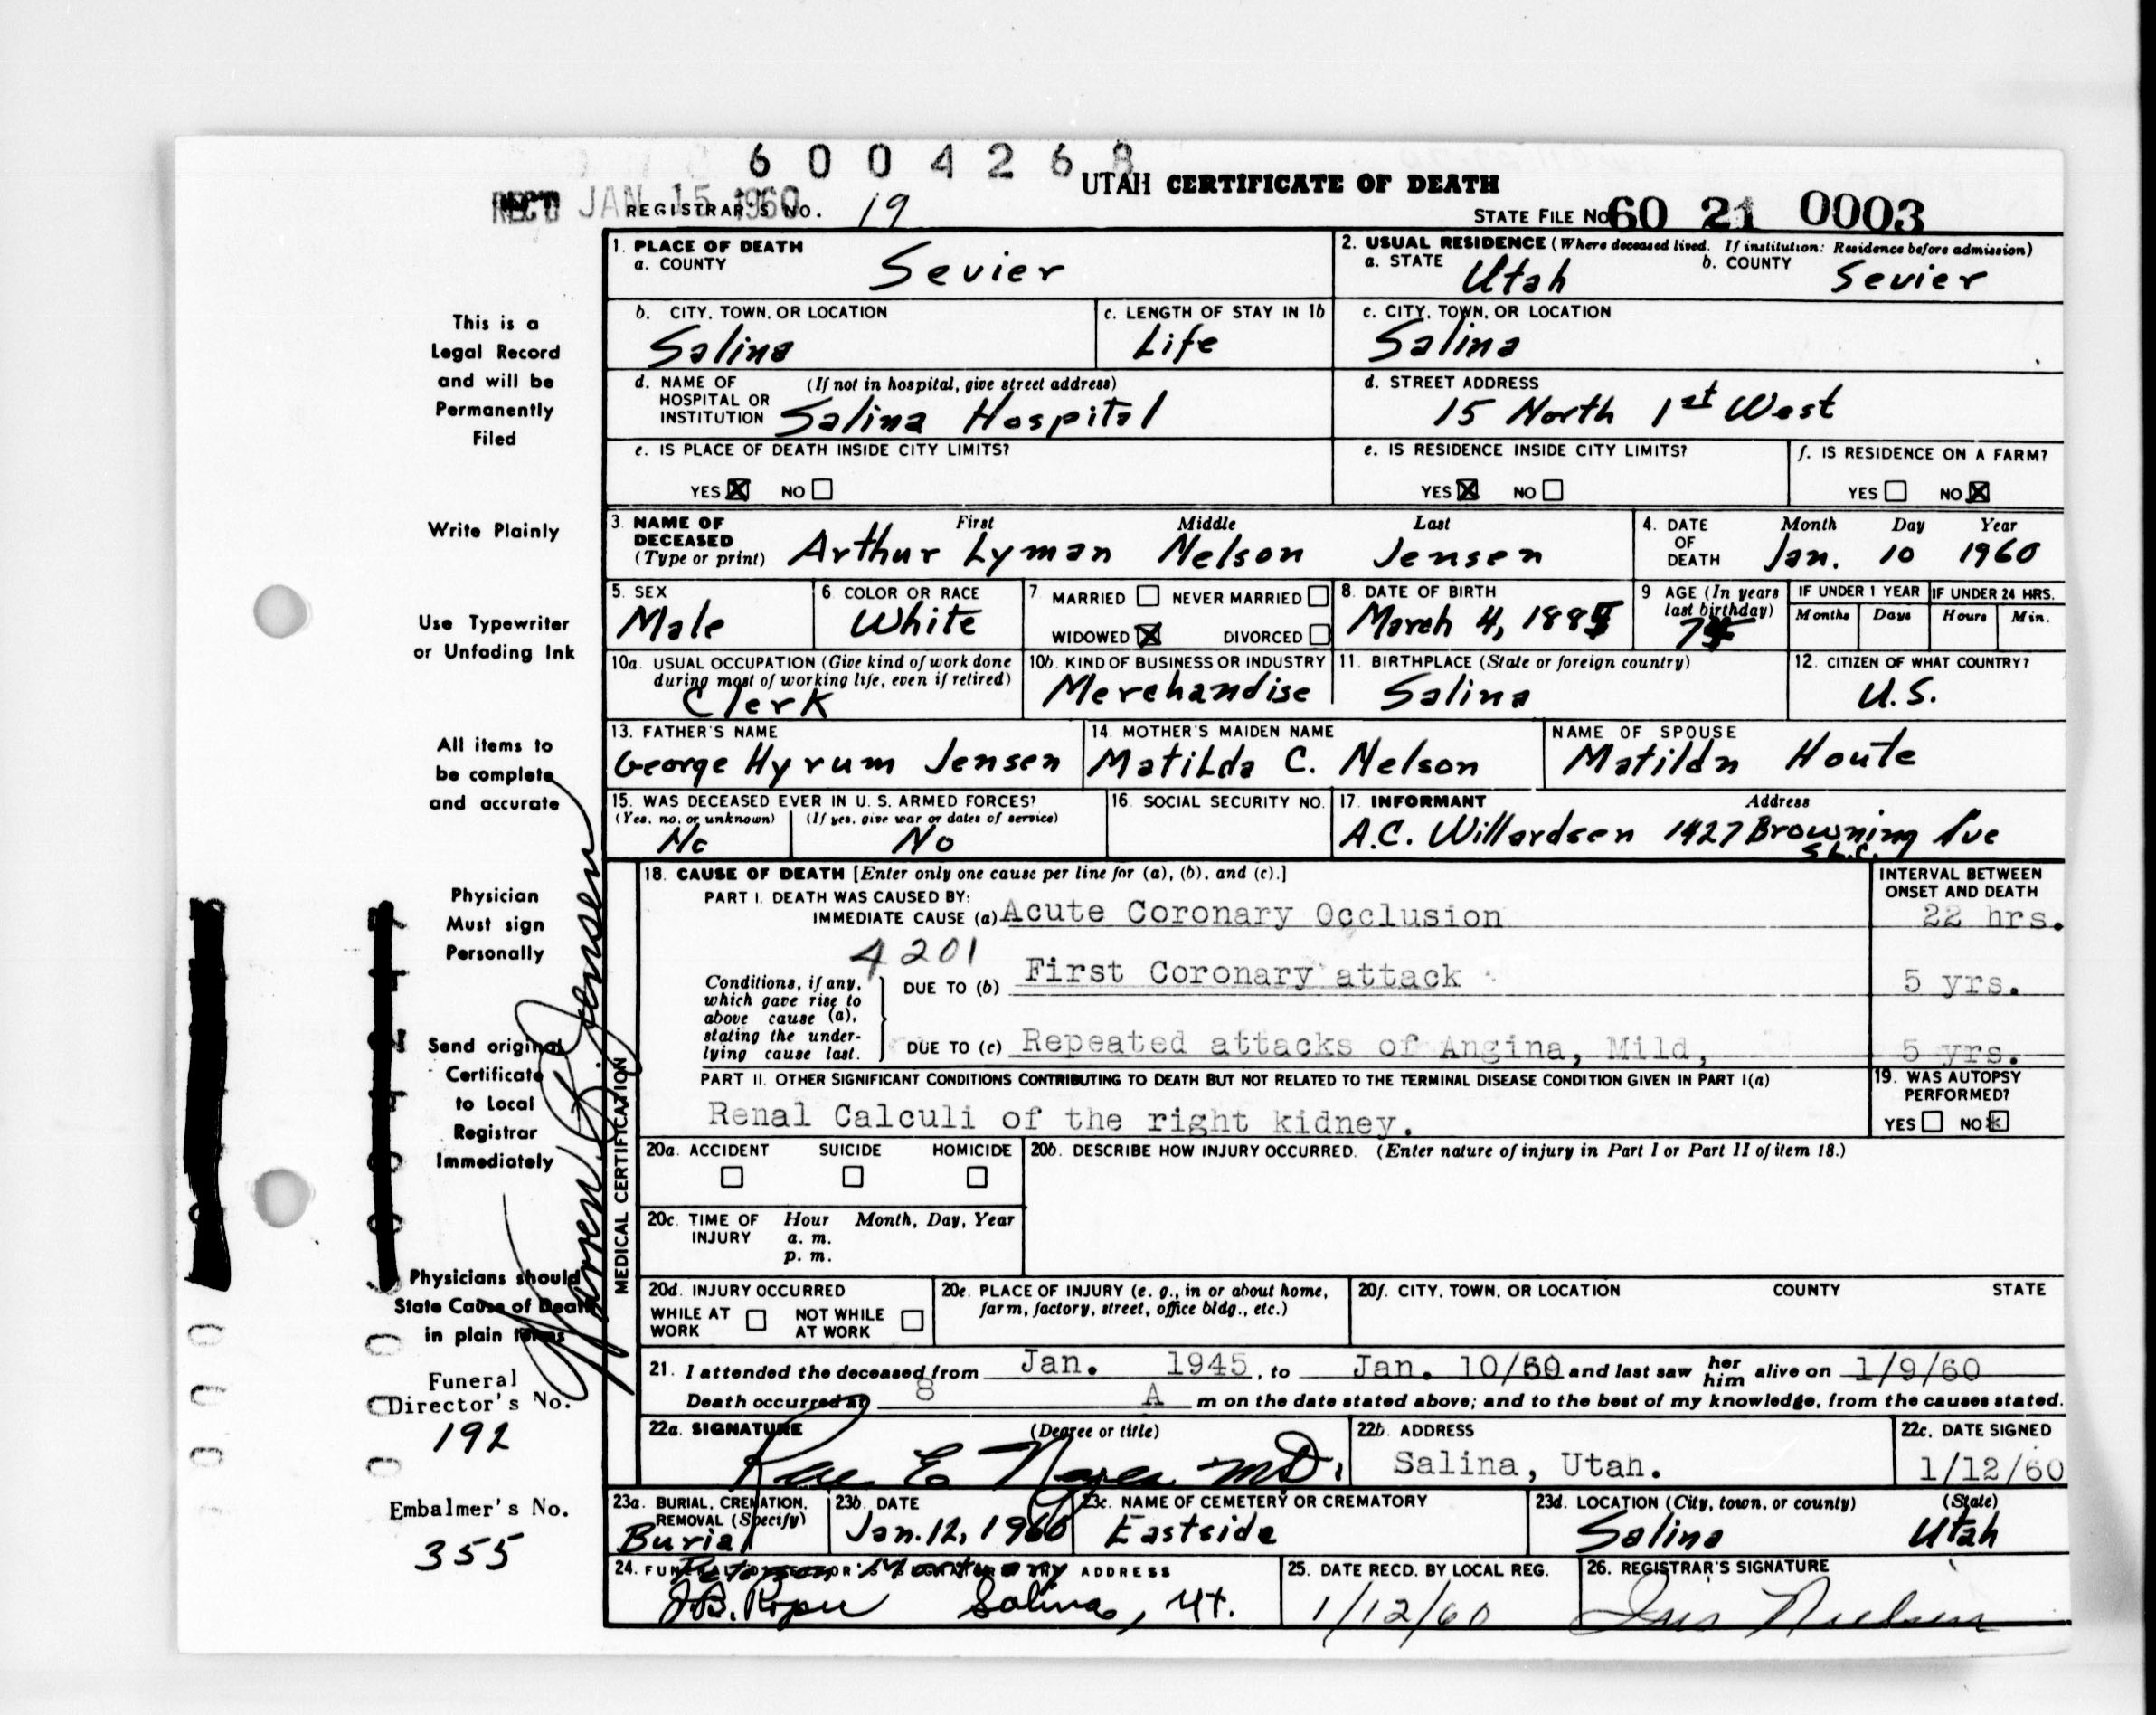 6 0 0 4 2 6 8
UTAH CERTIFICATE OF DEATH
REC'D JAN 15 1960
REGISTRAR'S NO. 19
STATE FILE No. 60 21 0003
1. PLACE OF DEATH
a. COUNTY Sevier
2. USUAL RESIDENCE (Where deceased lived. If institution: Residence before admission)
a. STATE Utah b. COUNTY Sevier
b. CITY, TOWN, OR LOCATION Salina
c. LENGTH OF STAY IN 1b Life
c. CITY, TOWN, OR LOCATION Salina
d. NAME OF HOSPITAL OR INSTITUTION (If not in hospital, give street address) Salina Hospital
d. STREET ADDRESS 15 North 1st West
e. IS PLACE OF DEATH INSIDE CITY LIMITS?
YES ☒ NO ☐
e. IS RESIDENCE INSIDE CITY LIMITS?
YES ☒ NO ☐
f. IS RESIDENCE ON A FARM?
YES ☐ NO ☒
3. NAME OF DECEASED (Type or print) First Middle Last
Arthur Lyman Nelson Jensen
4. DATE OF DEATH Month Day Year
Jan. 10 1960
5. SEX Male
6. COLOR OR RACE White
7. MARRIED ☐ NEVER MARRIED ☐
WIDOWED ☒ DIVORCED ☐
8. DATE OF BIRTH March 4,
9 AGE (In years last birthday)
IF UNDER 1 YEAR Months Days
IF UNDER 24 HRS. Hours Min.
10a. USUAL OCCUPATION (Give kind of work done during most of working life, even if retired) Clerk
10b. KIND OF BUSINESS OR INDUSTRY Merchandise
11. BIRTHPLACE (State or foreign country) Salina
12. CITIZEN OF WHAT COUNTRY? U.S.
13. FATHER'S NAME George Hyrum Jensen
14. MOTHER'S MAIDEN NAME Matilda C. Nelson
NAME OF SPOUSE Matilda Houte
15. WAS DECEASED EVER IN U. S. ARMED FORCES?
(Yes, no, or unknown) No
(If yes, give war or dates of service) No
16. SOCIAL SECURITY NO.
17. INFORMANT Address
A.C. Willardsen 1427 Browning Ave
S.L.C.
18. CAUSE OF DEATH [Enter only one cause per line for (a), (b), and (c).]
INTERVAL BETWEEN ONSET AND DEATH
PART I. DEATH WAS CAUSED BY:
IMMEDIATE CAUSE (a) Acute Coronary Occlusion 22 hrs.
4201
Conditions, if any, which gave rise to above cause (a), stating the underlying cause last.
DUE TO (b) First Coronary attack 5 yrs.
DUE TO (c) Repeated attacks of Angina, Mild, 5 yrs.
PART II. OTHER SIGNIFICANT CONDITIONS CONTRIBUTING TO DEATH BUT NOT RELATED TO THE TERMINAL DISEASE CONDITION GIVEN IN PART I(a)
Renal Calculi of the right kidney.
19. WAS AUTOPSY PERFORMED?
YES ☐ NO ☒
20a. ACCIDENT ☐ SUICIDE ☐ HOMICIDE ☐
20b. DESCRIBE HOW INJURY OCCURRED. (Enter nature of injury in Part I or Part II of item 18.)
20c. TIME OF INJURY Hour Month, Day, Year
a. m.
p. m.
20d. INJURY OCCURRED
WHILE AT WORK ☐ NOT WHILE AT WORK ☐
20e. PLACE OF INJURY (e. g., in or about home, farm, factory, street, office bldg., etc.)
20f. CITY, TOWN, OR LOCATION COUNTY STATE
21. I attended the deceased from Jan. 1945, to Jan. 10/60 and last saw her him alive on 1/9/60
Death occurred at 8 A m on the date stated above; and to the best of my knowledge, from the causes stated.
22a. SIGNATURE (Degree or title)
Rae E M.D.
22b. ADDRESS Salina, Utah.
22c. DATE SIGNED 1/12/60
23a. BURIAL, CREMATION, REMOVAL (Specify) Burial
23b. DATE Jan. 12, 1960
23c. NAME OF CEMETERY OR CREMATORY Eastside
23d. LOCATION (City, town, or county) (State)
Salina Utah
24. ADDRESS
Mortuary
J.B. Salina, Ut.
25. DATE RECD. BY LOCAL REG. 1/12/60
26. REGISTRAR'S SIGNATURE Iris Nielsen
This is a
Legal Record
and will be
Permanently
Filed
Write Plainly
Use Typewriter
or Unfading Ink
All items to
be complete
and accurate
Physician
Must sign
Personally
Send original
Certificate
to Local
Registrar
Immediately
Physicians should
State Cause of Death
in plain terms
Funeral
Director's No.
192
Embalmer's No.
355
MEDICAL CERTIFICATION
Jensen